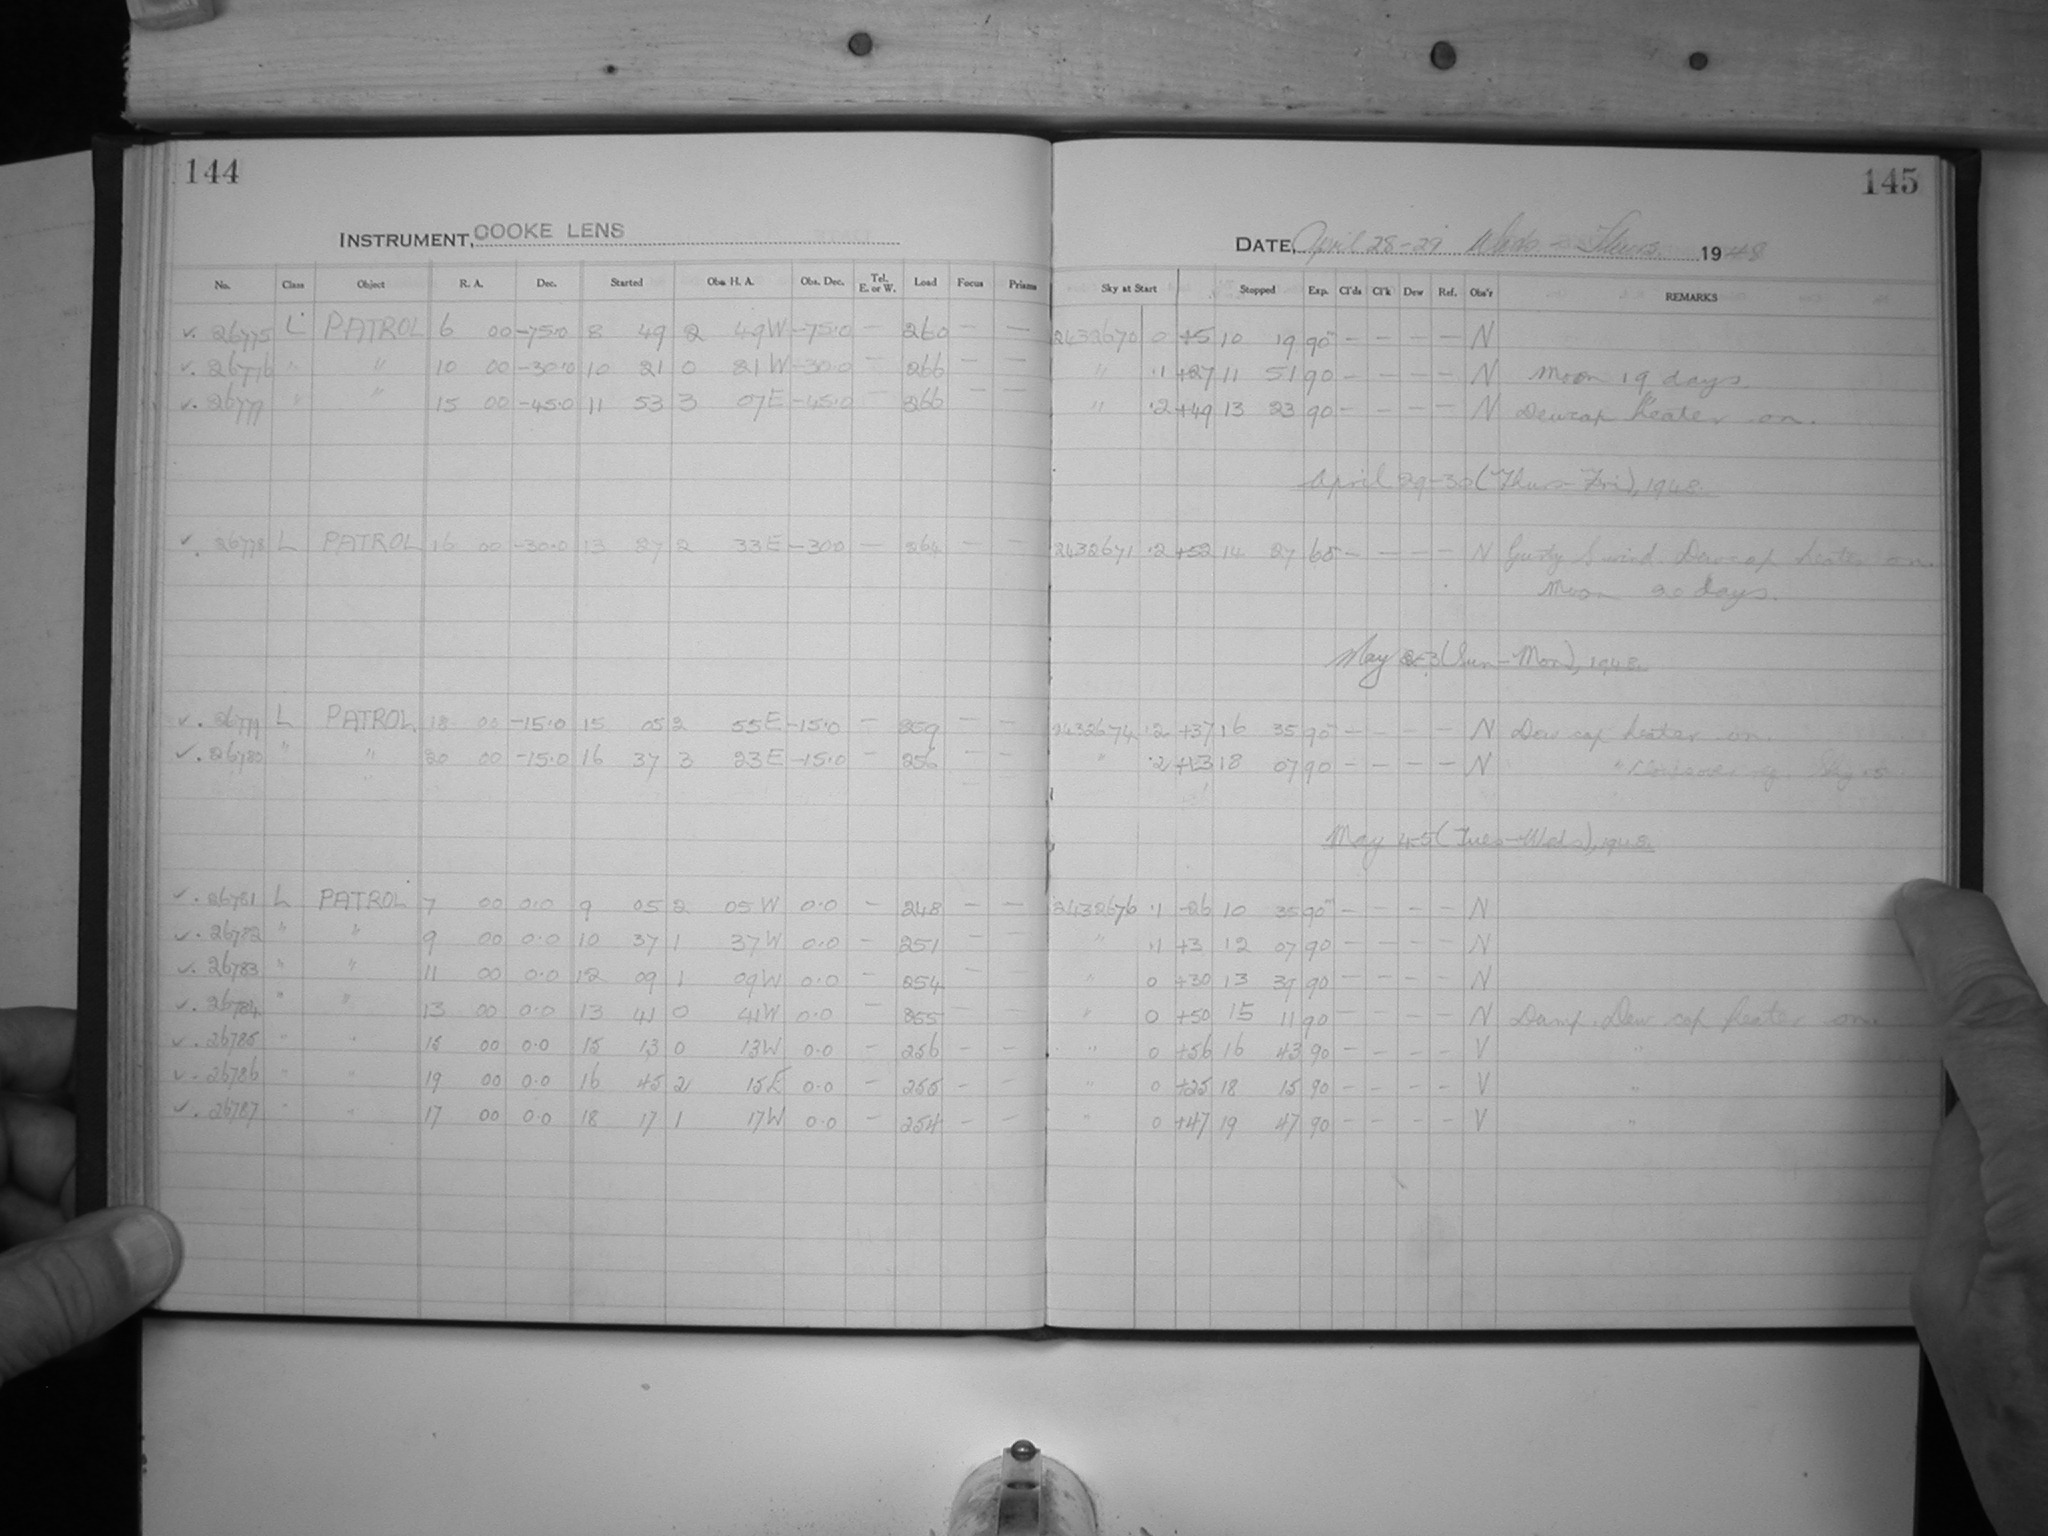 144
145
INSTRUMENT, COOKE LENS
DATE, April 28-29 Weds - Thurs. 1948
No. Class Object R. A. Dec. Started Obs. H. A. Obs. Dec. Tel. E. or W. Load Focus Prisms Sky at Start Stopped Exp. Cl'ds Cl'k Dew Ref. Obs'r REMARKS
✓. 26775 L PATROL 6 00 -75.0 8 49 2 49W -75.0 — 260 — — 2432670 0 +5 10 19 90m — — — — N
✓. 26776 " " 10 00 -30.0 10 21 0 21W -30.0 — 266 — — " .1 +27 11 51 90 — — — — N Moon 19 days.
✓. 26777 " " 15 00 -45.0 11 53 3 07E -45.0 — 266 — — " .2 +49 13 23 90 — — — — N Dewcap heater on.
April 29-30 (Thurs-Fri), 1948.
✓. 26778 L PATROL 16 00 -30.0 13 27 2 33E -30.0 — 264 — — 2432671 .2 +52 14 27 60 — — — — N Gusty S wind. Dewcap heater on.
Moon 20 days.
May 2-3 (Sun-Mon), 1948.
✓. 26779 L PATROL 18 00 -15.0 15 05 2 55E -15.0 — 259 — — 2432674 .2 +37 16 35 90m — — — — N Dew cap heater on.
✓. 26780 " " 20 00 -15.0 16 37 3 23E -15.0 — 256 — — " .2 +13 18 07 90 — — — — N "
May 4-5 (Tues-Weds), 1948.
✓. 26781 L PATROL 7 00 0.0 9 05 2 05W 0.0 — 248 — — 2432676 .1 -26 10 35 90m — — — — N
✓. 26782 " " 9 00 0.0 10 37 1 37W 0.0 — 251 — — " .1 +3 12 07 90 — — — — N
✓. 26783 " " 11 00 0.0 12 09 1 09W 0.0 — 254 — — " 0 +30 13 39 90 — — — — N
✓. 26784 " " 13 00 0.0 13 41 0 41W 0.0 — 255 — — " 0 +50 15 11 90 — — — — N Damp. Dew cap heater on.
✓. 26785 " " 15 00 0.0 15 13 0 13W 0.0 — 256 — — " 0 +56 16 43 90 — — — — V "
✓. 26786 " " 19 00 0.0 16 45 2 15E 0.0 — 255 — — " 0 +25 18 15 90 — — — — V "
✓. 26787 " " 17 00 0.0 18 17 1 17W 0.0 — 254 — — " 0 +47 19 47 90 — — — — V "